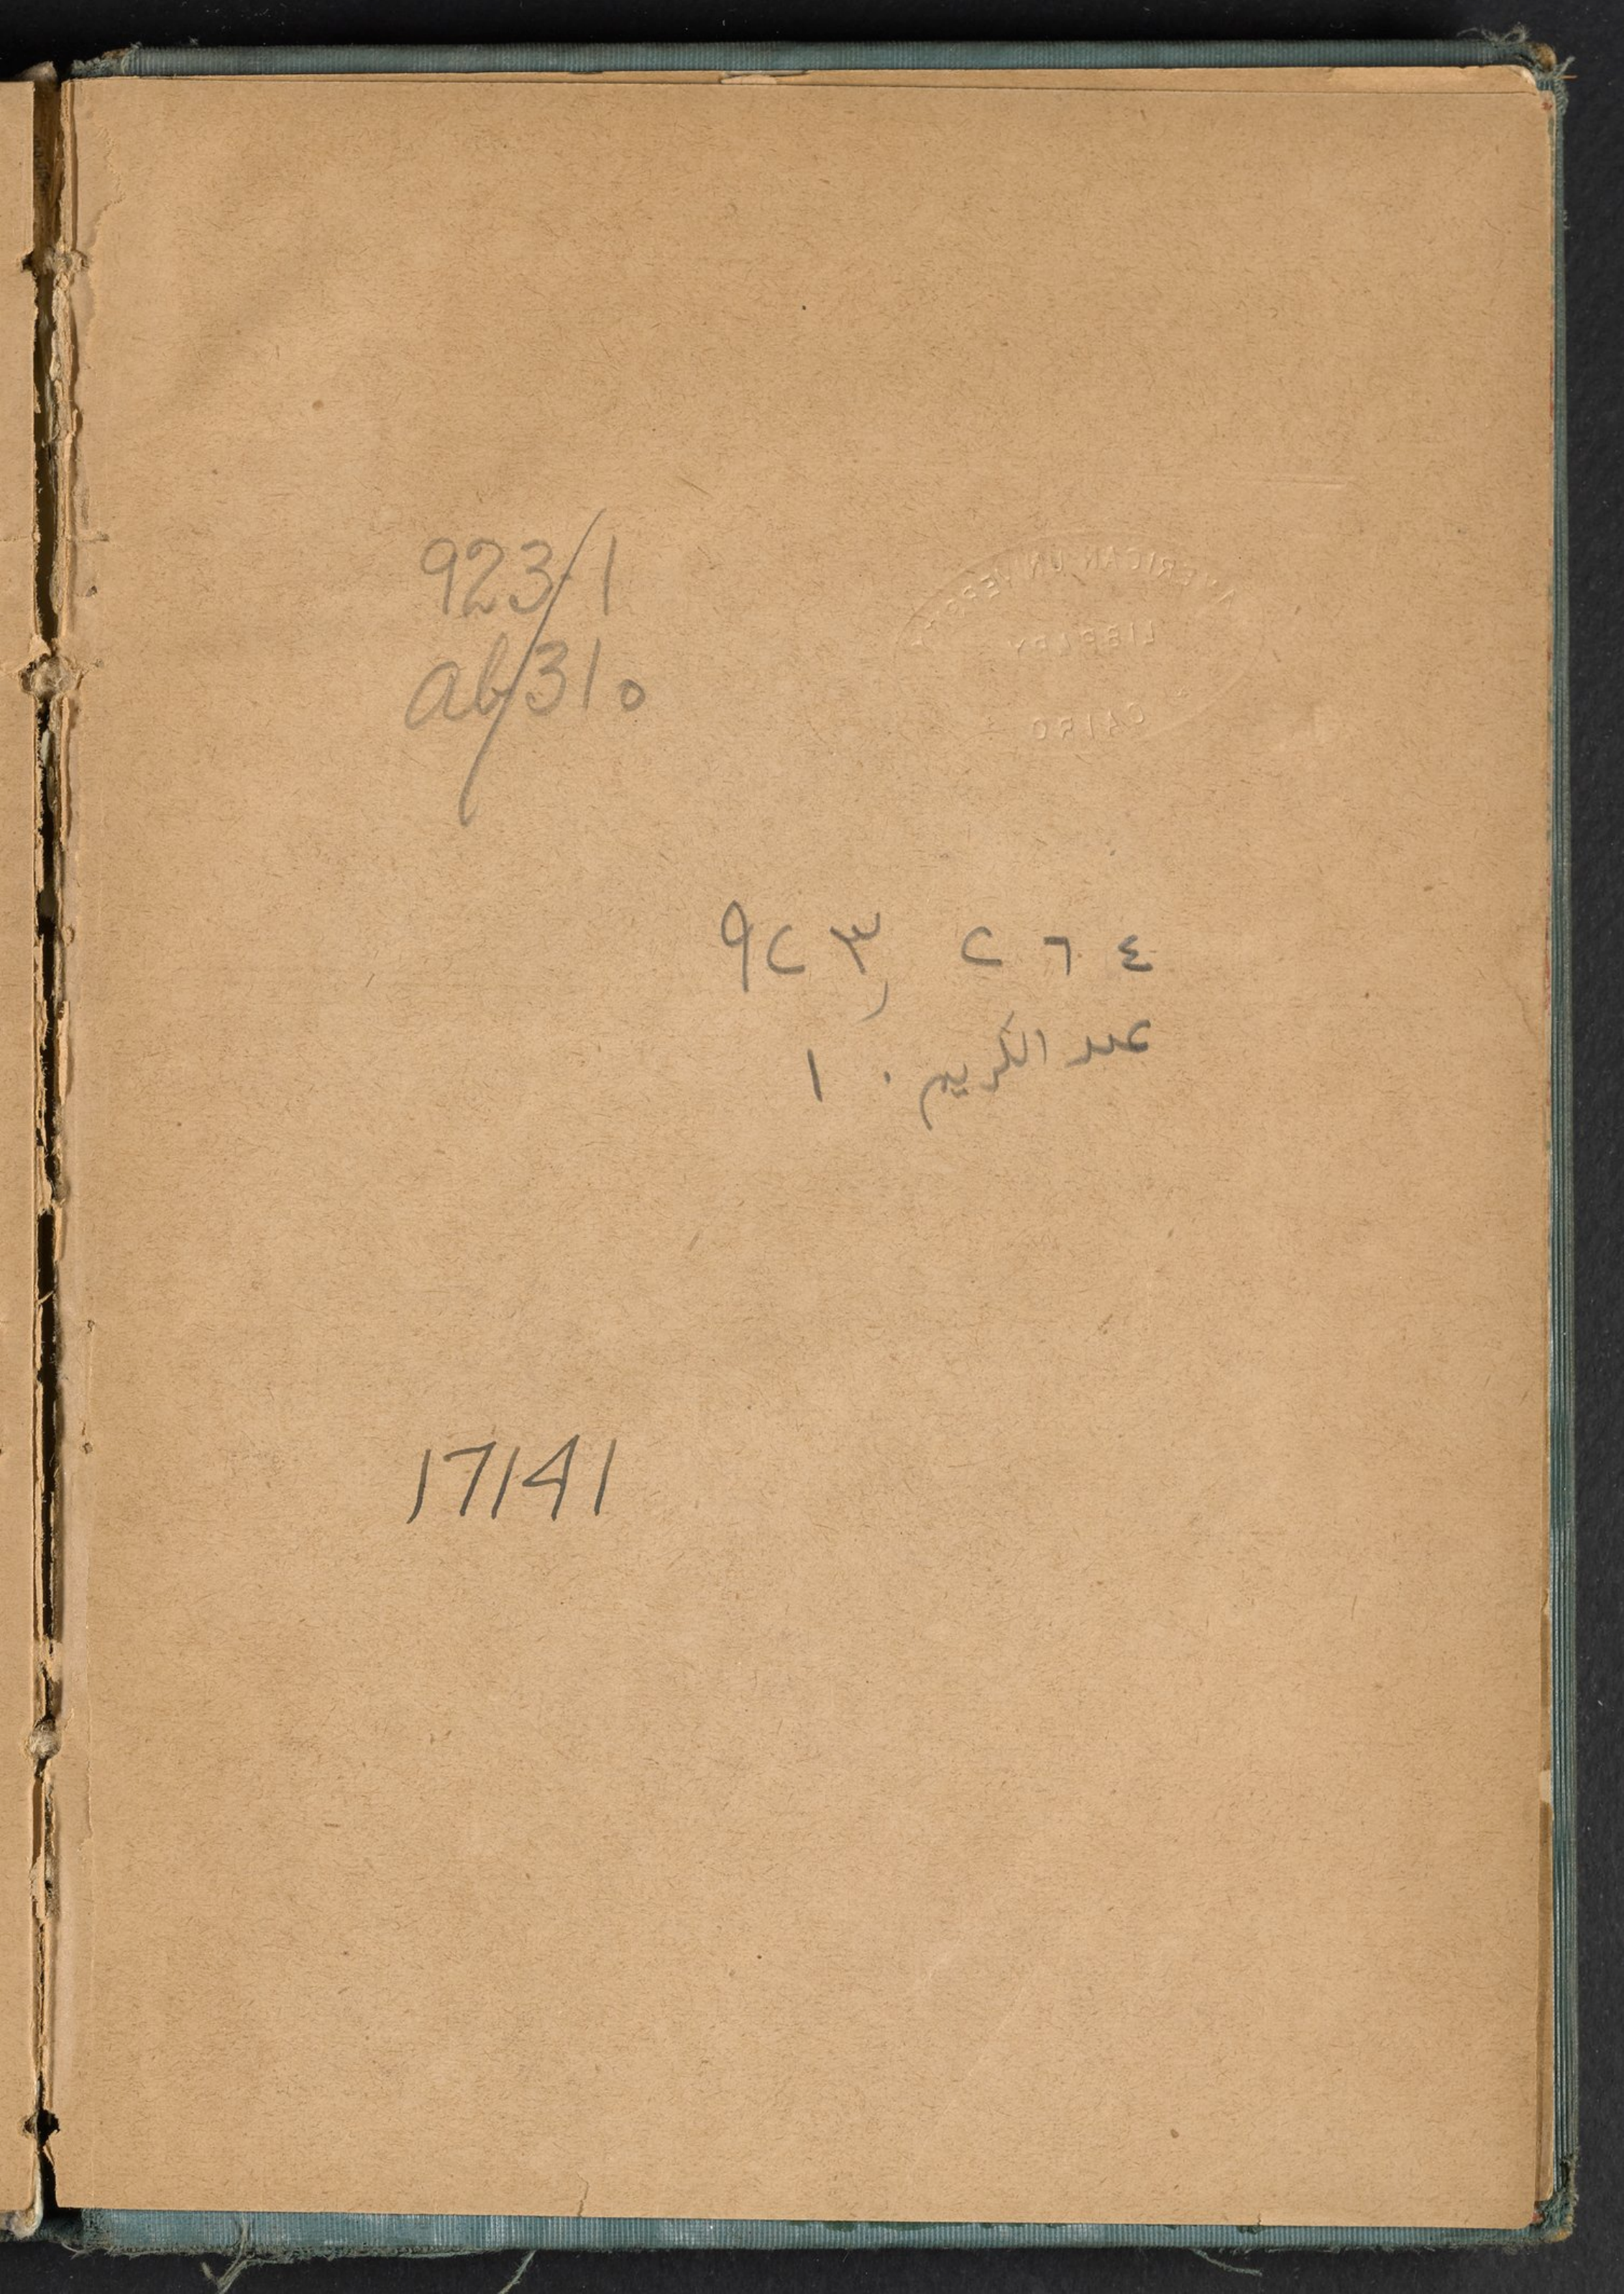 923.1
ab31o
AMERICAN UNIVERSITY
LIBRARY
CAIRO
٩٢٣,٢٦٤
عبد الكريم . ا
17141